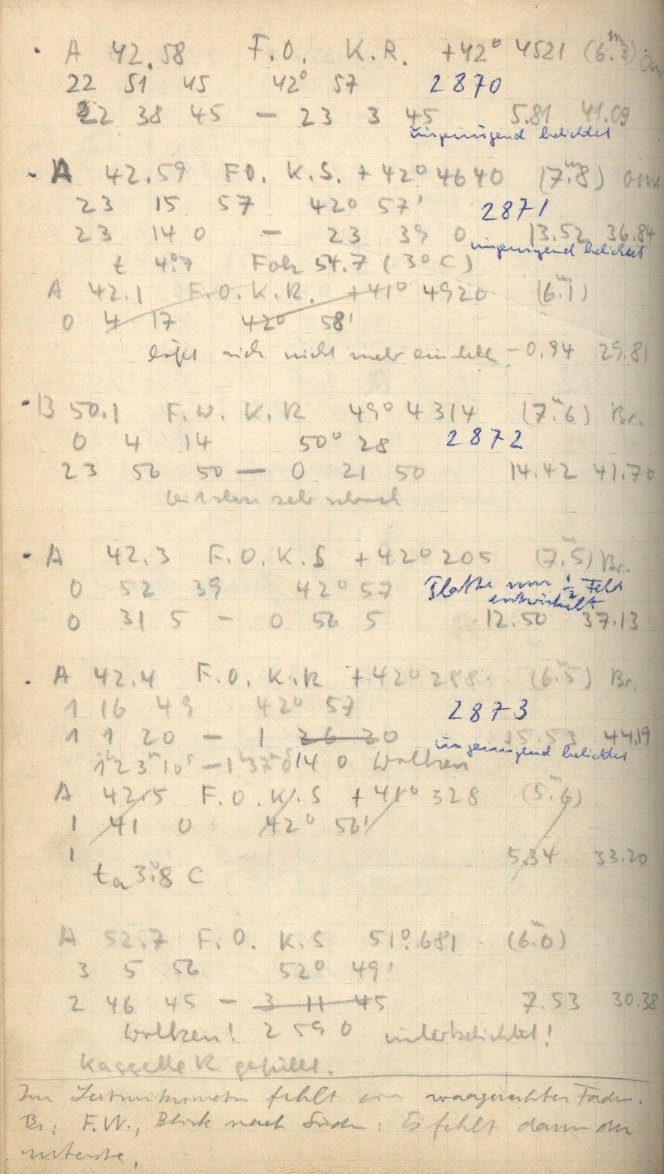 · A 42.58 F.O. K.R. +42° 4521 (6.ᵐ3)
22 51 45 42° 57 2870
22 38 45 – 23 3 45 5.81 41.09
ungenügend belichtet
· A 42.59 FO. K.S. +42° 4640 (7.ᵐ8)
23 15 57 42° 57' 2871
23 14 0 – 23 39 0 13.52 36.84
ungenügend belichtet
t 4.°7 Fok 54.7 (3°C)
A 42.1 F.O. K.R. +41° 4920 (6.ᵐ1)
0 4 17 42° 58'
läßt sich nicht mehr einstellen -0.94 29.81
· B 50.1 F.W. K.R 49° 4314 (7.ᵐ6) Br.
0 4 14 50° 28 2872
23 56 50 – 0 21 50 14.42 41.70
sehr schwach
· A 42.3 F.O. K.S +42° 205 (7.ᵐ5) Br.
0 52 39 42° 57 Platte nur ½ Feld
entwickelt
0 31 5 – 0 56 5 12.50 37.13
· A 42.4 F.O. K.R +42° 288 (6.ᵐ5) Br.
1 16 49 42° 57 2873
1 1 20 – 1 26 20 15.53 44.19
ungenügend belichtet
1ʰ23ᵐ10ˢ – 1ʰ37ᵐ0ˢ 14 0 Wolken
A 42.5 F.O. K.S +41° 328 (5.ᵐ6)
1 41 0 42° 56'
1 5.34 33.20
tₐ 3.°8 C
A 52.7 F.O. K.S 51° 681 (6.ᵐ0)
3 5 56 52° 49'
2 46 45 – 3 11 45 7.53 30.38
Wolken! 2 59 0 unterbelichtet!
Kassette R gefüllt.
Im fehlt ein waagerechter Faden.
Br: F.W., Blick nach Süden: Es fehlt dann der
unterste.